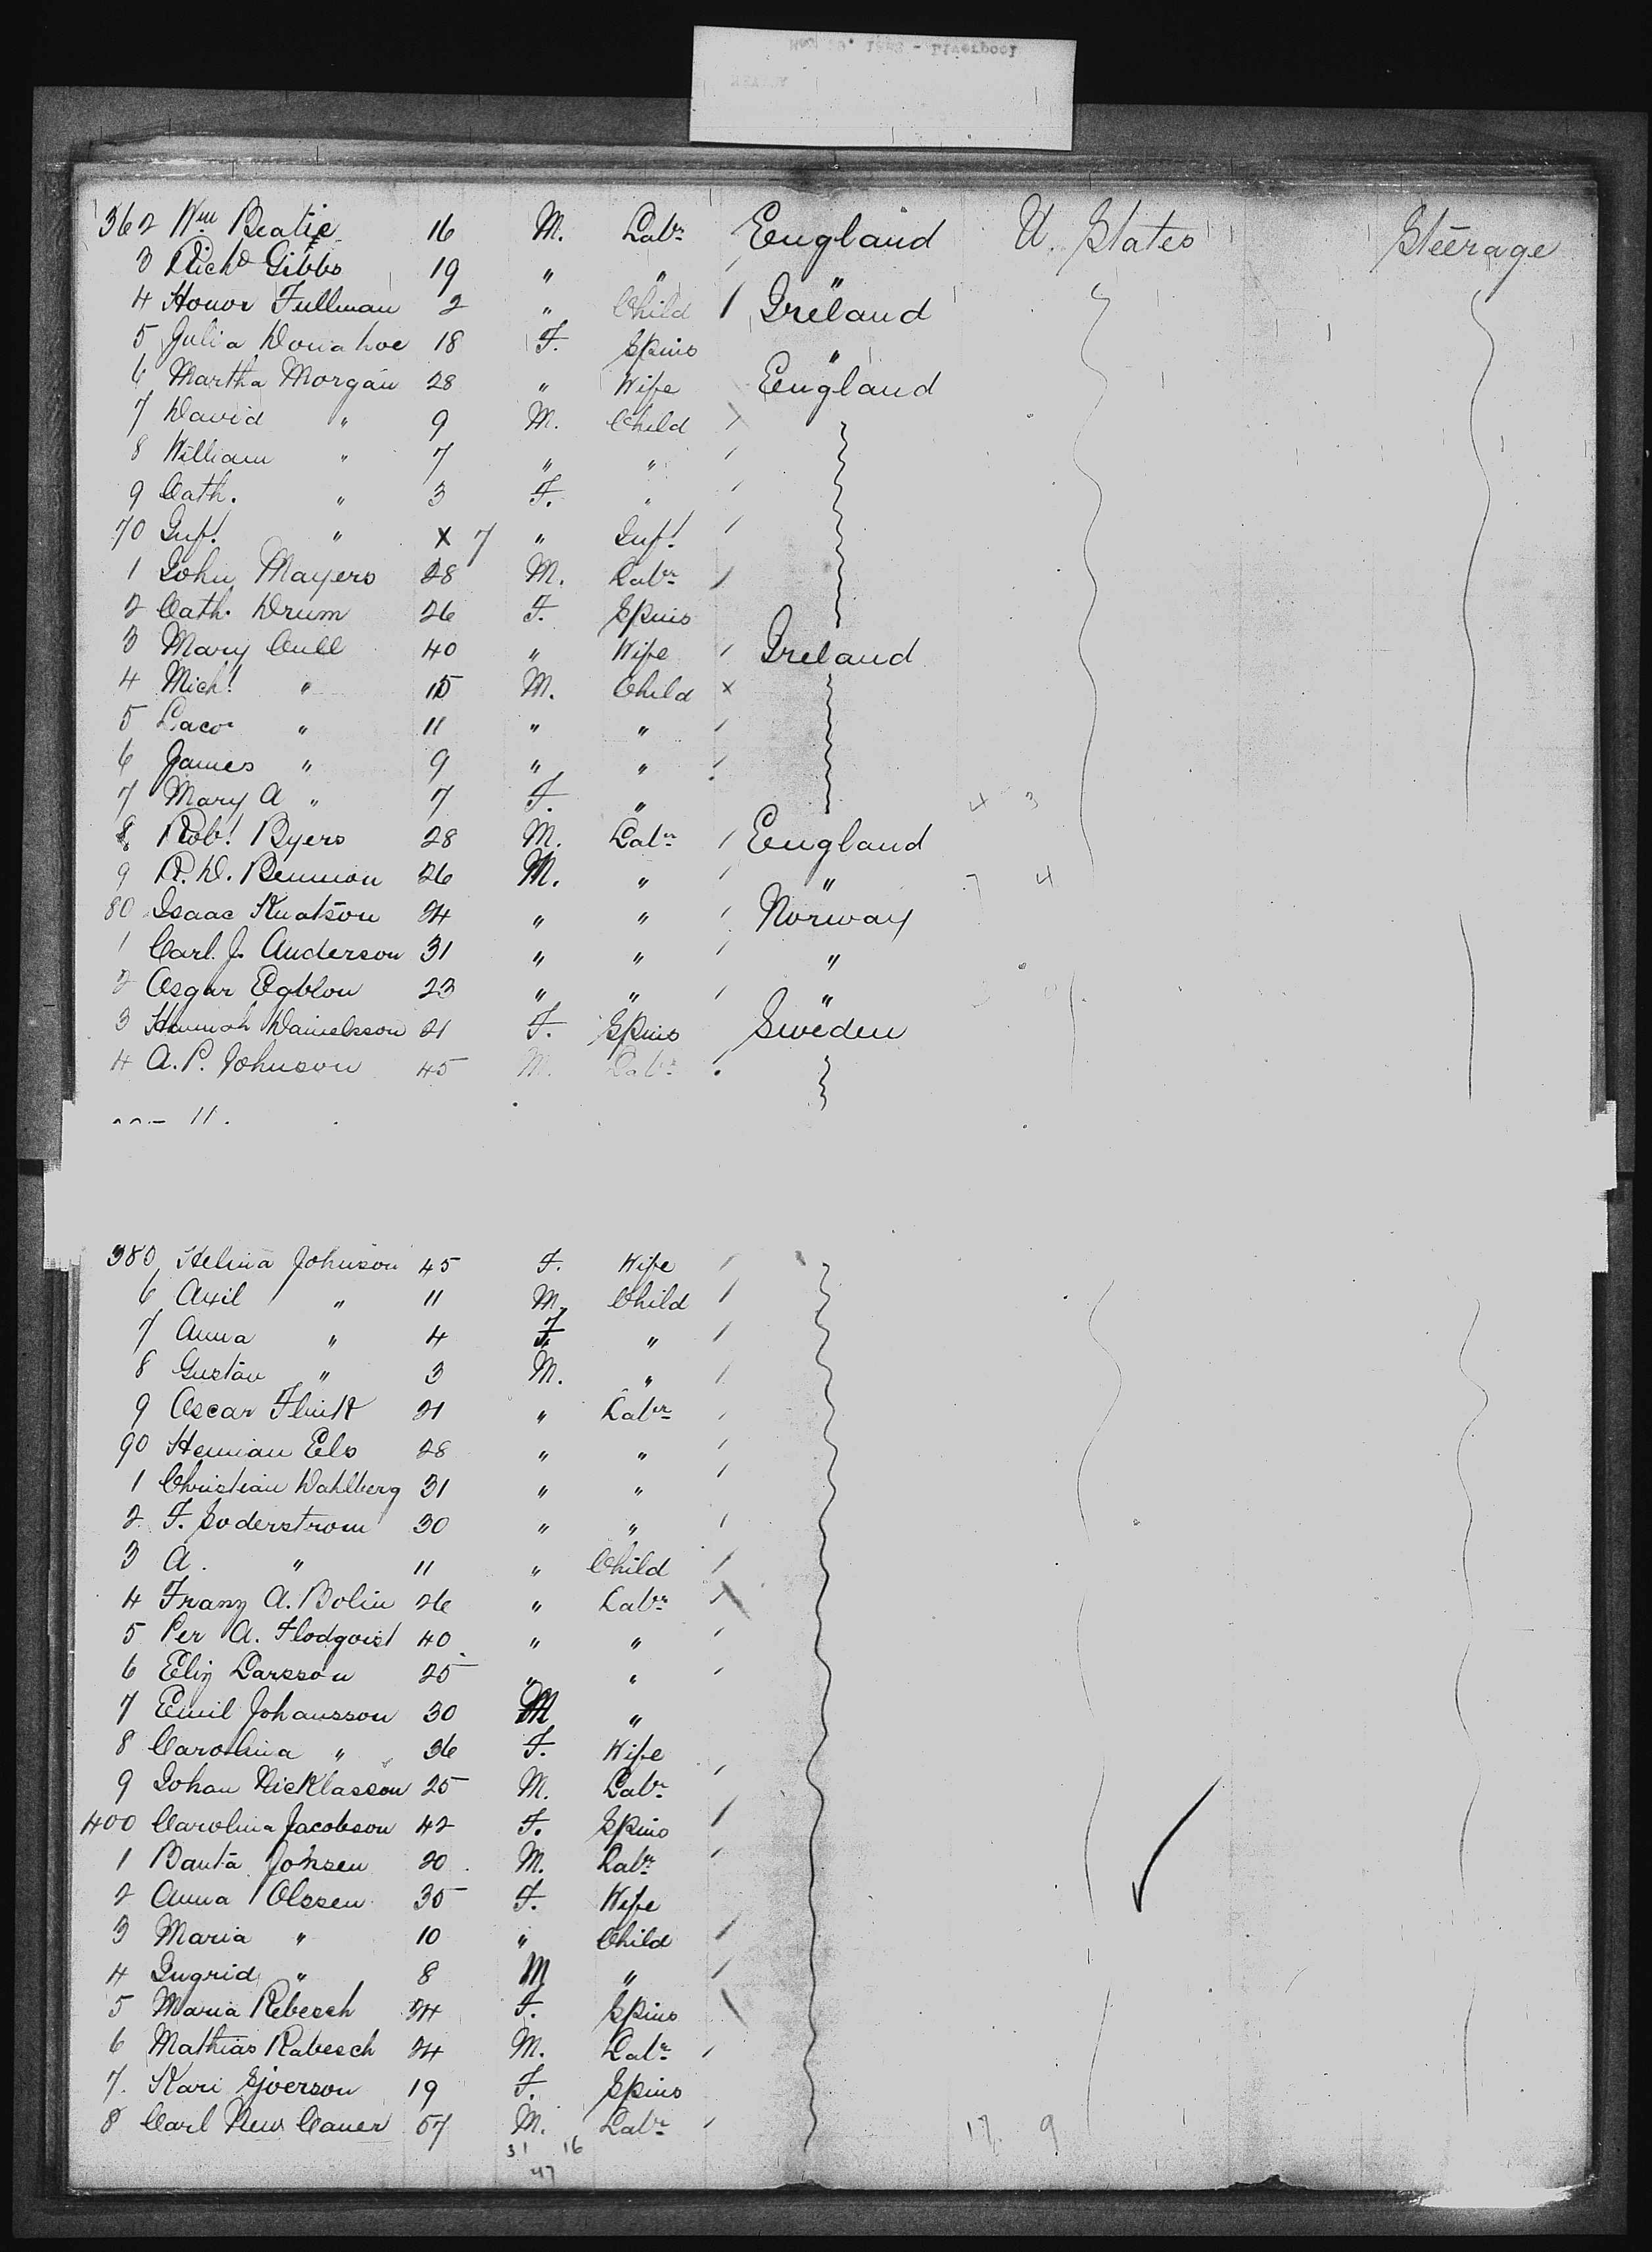 362 Wm Beatie 16 M. Labr England U. States Steerage
3 Richd Gibbs 19 " " "
4 Honor Fullman 2 " Child Ireland
5 Julia Donahoe 18 F. Spins "
6 Martha Morgan 28 " Wife England
7 David " 9 M. Child
8 William " 7 " "
9 Cath. " 3 F. "
70 Inft " x 7 " Inft
1 John Mayers 28 M. Labr
2 Cath. Drum 26 F. Spins
3 Mary Cull 40 " Wife Ireland
4 Michl " 15 M. Child x
5 " 11 " "
6 James " 9 " "
7 Mary A " 7 F. " 4 3
8 Robt Byers 28 M. Labr England
9 R. D. Bennion 26 M. " " 7 4
80 Isaac Knatson 24 " " Norway
1 Carl. J. Anderson 31 " " "
2 Osgar Egblon 23 " " "
3 Hannah Danielsson 21 F. Spins Sweden
4 A. P. Johnson 45 M. Labr
385 Helina Johnson 45 F. Wife
6 Axil " 11 M. Child
7 Anna " 4 F. "
8 Gustav " 3 M. "
9 Oscar Flink 21 " Labr
90 Herman Els 28 " "
1 Christian Dahlberg 31 " "
2 F. Soderstrom 30 " "
3 A. " 11 " Child
4 Franz A. Bolin 26 " Labr
5 Per A. Flodqvist 40 " "
6 Elin Larsson 25 " "
7 Emil Johansson 30 M "
8 Carolina " 36 F. Wife
9 Johan Nicklasson 25 M. Labr
400 Carolina Jacobson 42 F. Spins
1 Banta Johsen 20 M. Labr
2 Anna Olssen 35 F. Wife
3 Maria " 10 " Child
4 Ingrid " 8 M "
5 Maria Rebesch 24 F. Spins
6 Mathias Rabesch 24 M. Labr
7. Kari Sjverson 19 F. Spins
8 Carl New Caner 57 M. Labr 17 9
31 16
47